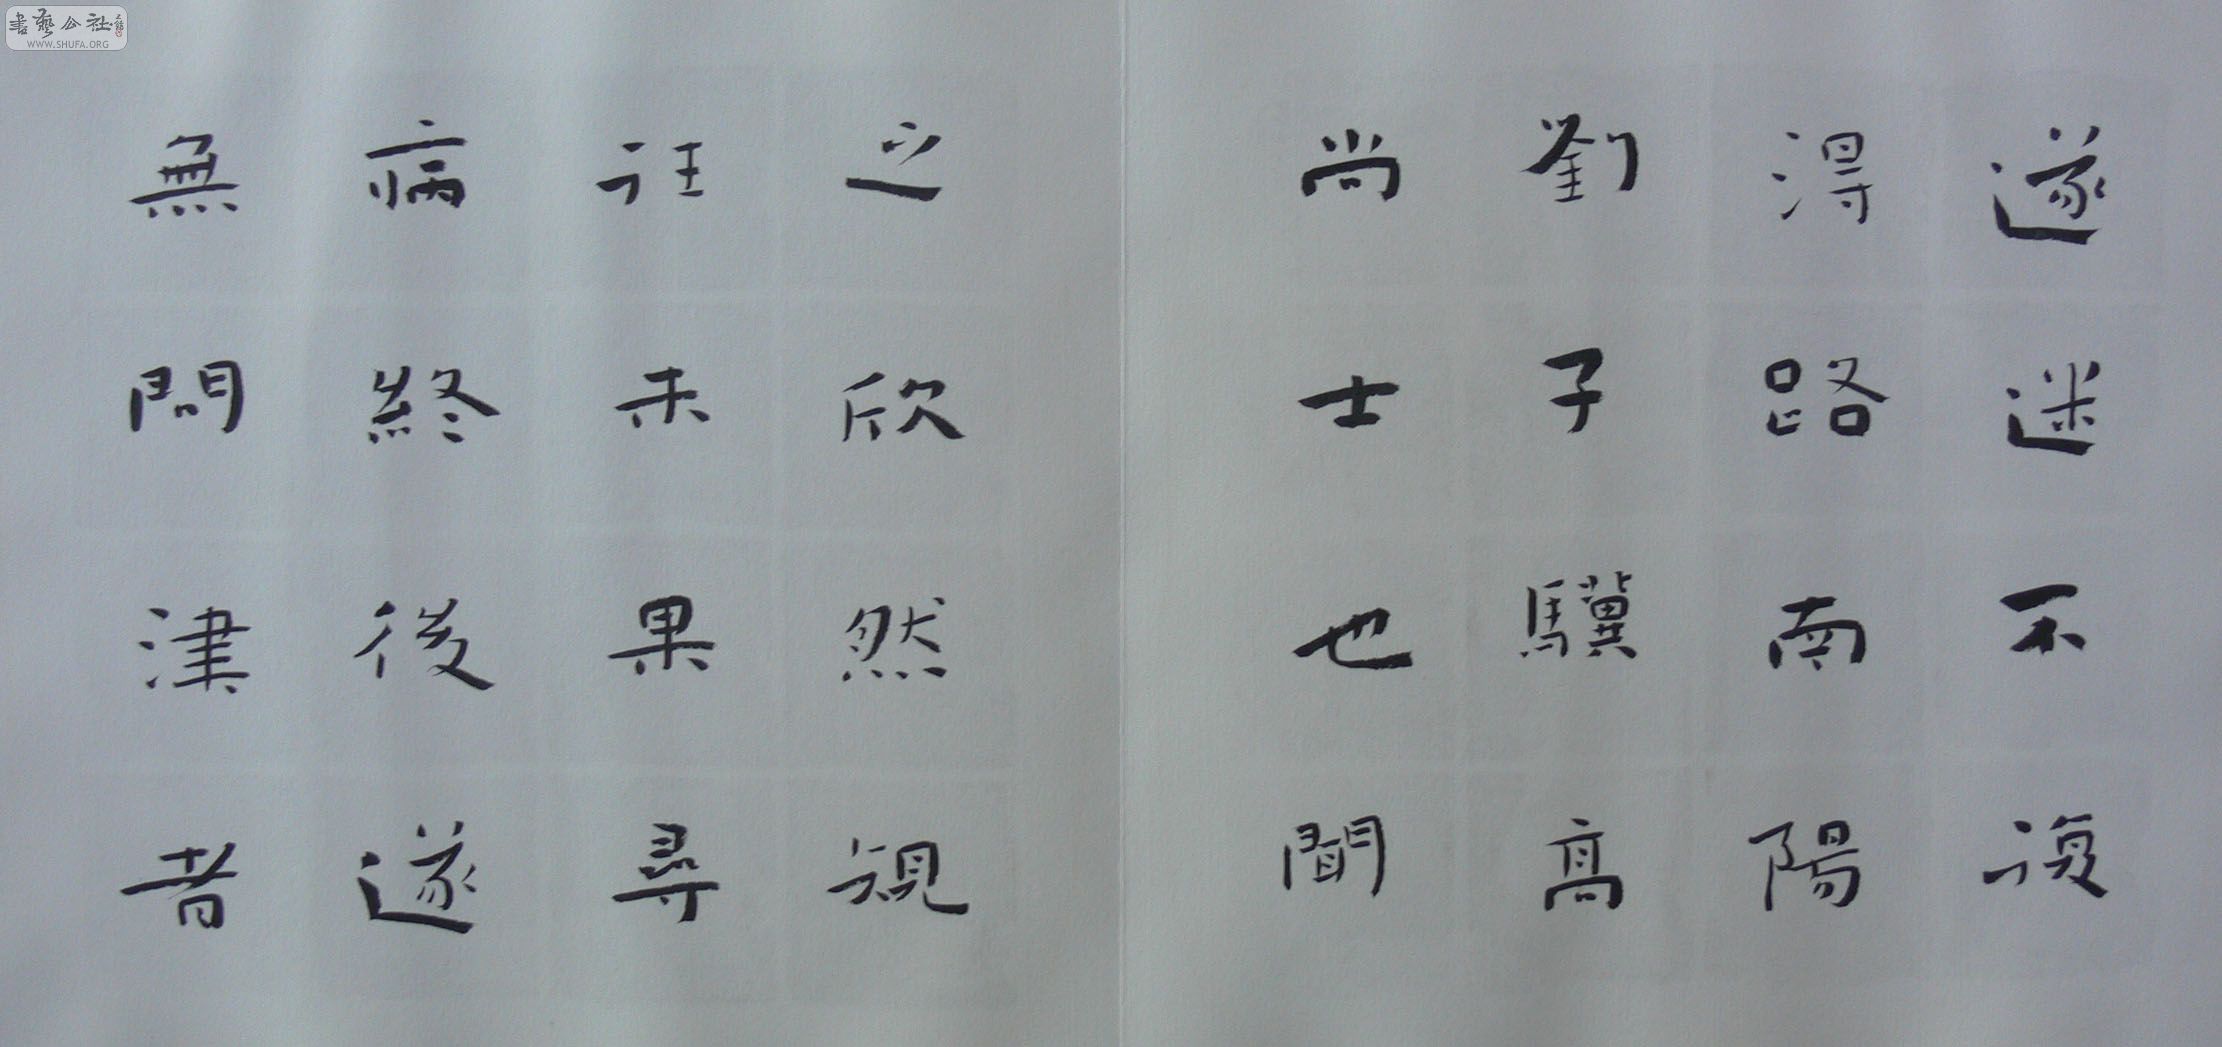 遂迷不復
淂路南陽
劉子驥高
尚士也聞
之欣然規
往未果尋
病終後遂
無問津者
書藝公社
WWW.SHUFA.ORG